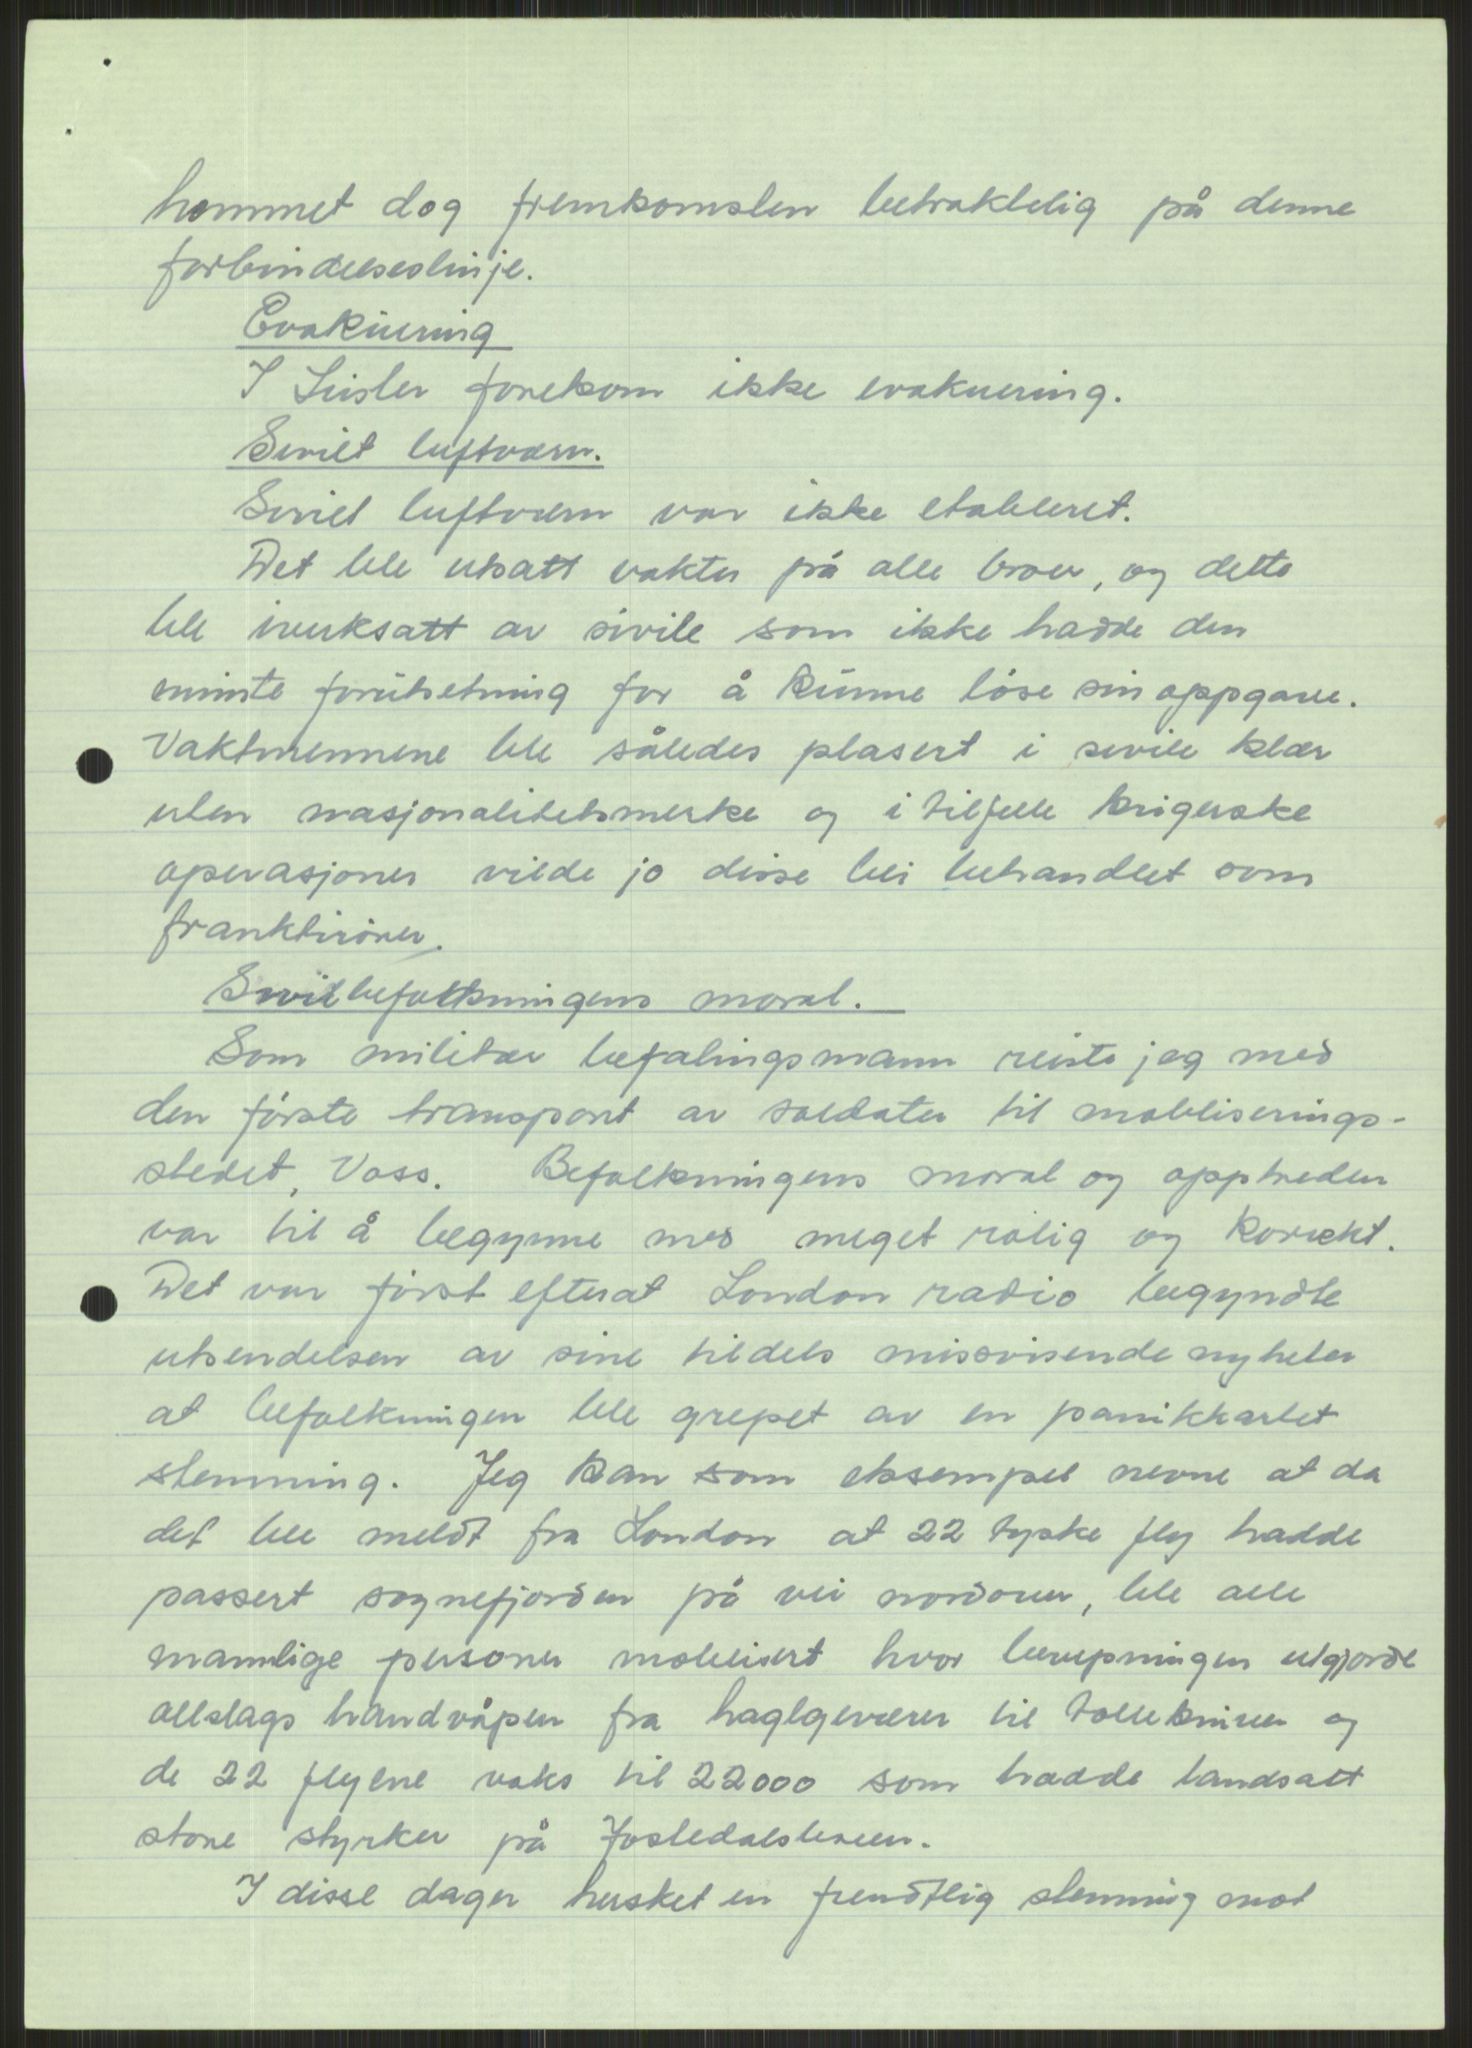 hemmet dog fremkomsten betraktelig på denne
forbindelseslinje.
Evakuering
I Luster forekom ikke evakuering.
Sivilt luftvern.
Sivilt luftvern var ikke etableret.
Det ble utsatt vakter på alle broer, og dette
ble iverksatt av sivile som ikke hadde den
minste forutsetning for å kunne löse sin oppgave.
Vaktmennene ble således plasert i sivile klær
uten nasjonalitetsmerke og i tilfelle krigerske
operasjoner vilde jo disse bli behandlet som
franktirører.
Sivilbefolkningens moral.
Som militær befalingsmann reiste jeg med
den förste transport av soldater til mobliserings-
stedet, Voss. Befolkningens moral og opptreden
var til å begynne med meget rolig og korrekt.
Det var först efterat London radio begyndte
utsendelsen av sine tildels missvisende nyheter
at befolkningen ble grepet av en panikkartet
stemning. Jeg kan som eksempel nevne at da
det ble meldt fra London at 22 tyske fly hadde
passert sognefjorden på vei nordover, ble alle
mannlige personer mobilisert hvor bevepningen utgjorde
allslags håndvåpen fra haglgeværer til tollekniver og
de 22 flyene vaks til 22000 som hadde landsatt
store styrker på Jostedalsbreen.
I disse dager hersket en fiendtlig stemning mot